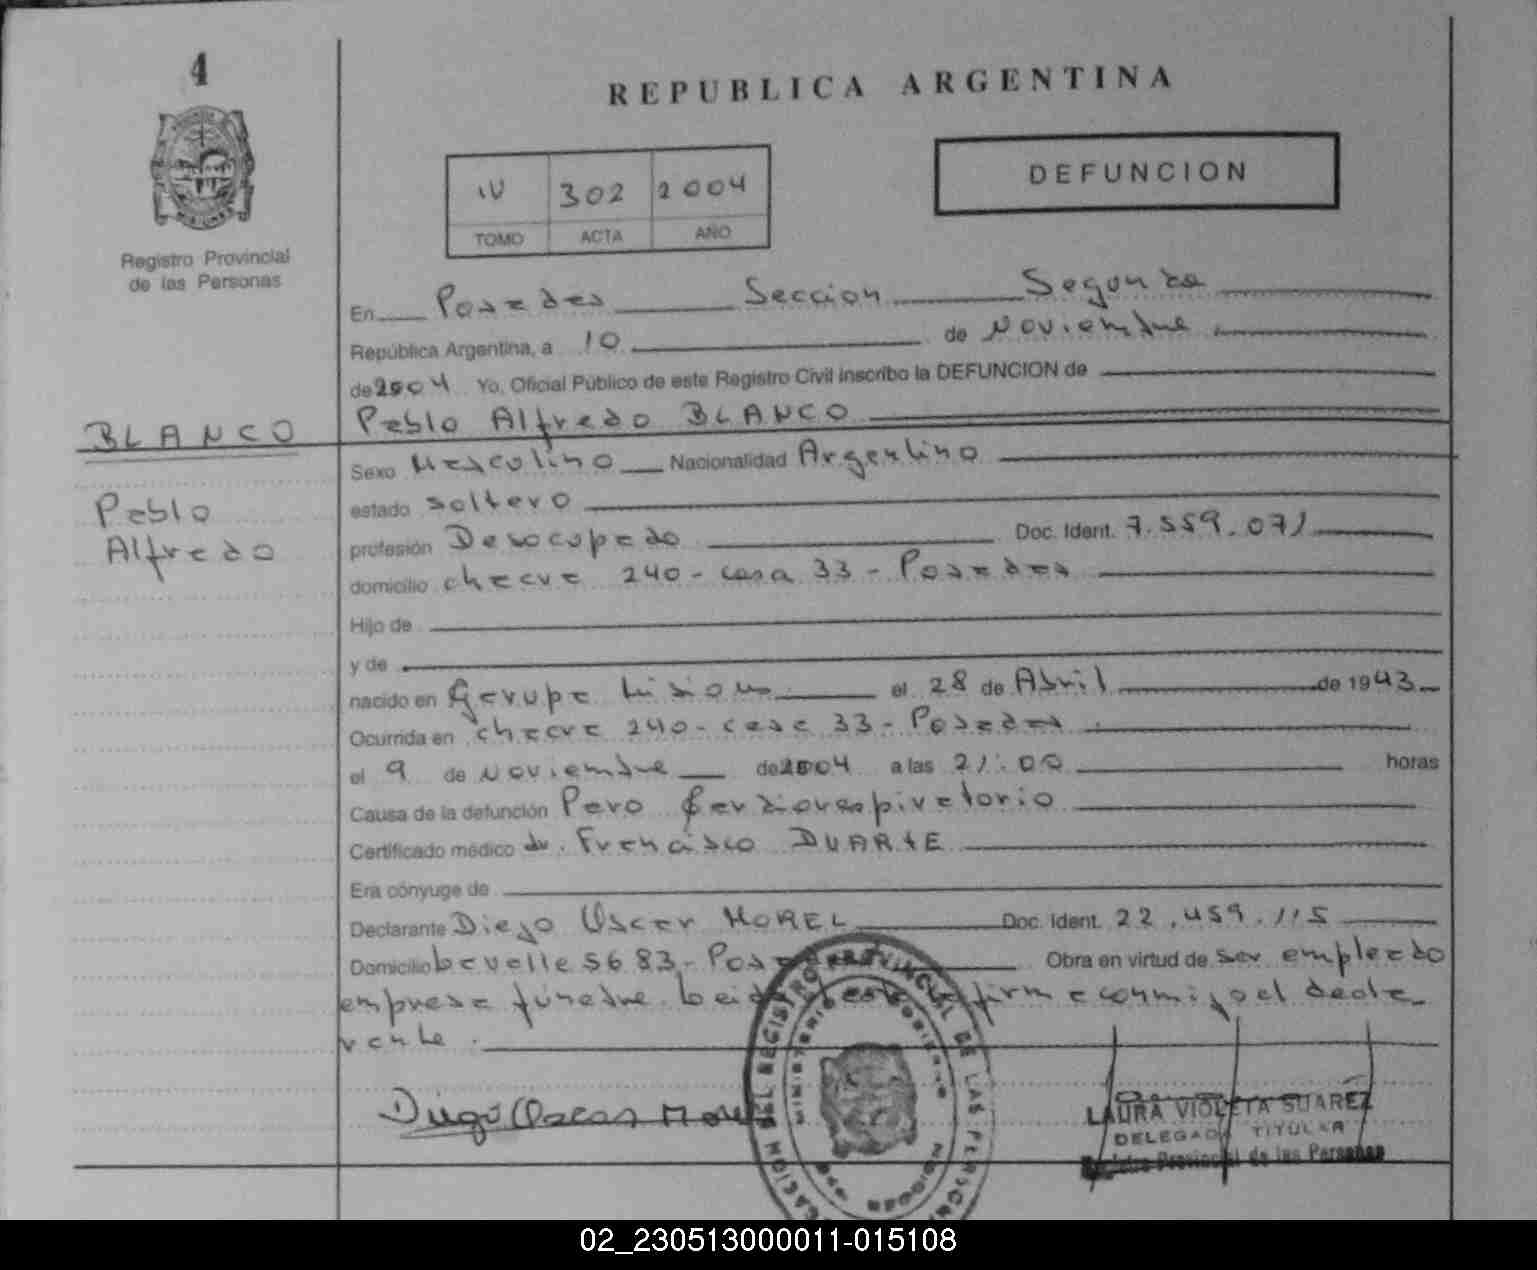 4
REPUBLICA ARGENTINA
IV 302 2004
TOMO ACTA AÑO
DEFUNCION
Registro Provincial
de las Personas
En Posadas Seccion Segunda
República Argentina, a 10 de Noviembre
de 2004 Yo, Oficial Público de este Registro Civil inscribo la DEFUNCION de
Pablo Alfredo BLANCO
BLANCO
Pablo
Alfredo
Sexo Masculino Nacionalidad Argentino
estado soltero
profesión Desocupado Doc. Ident. 7.559.071
domicilio chacra 240 - casa 33 - Posadas
Hijo de
y de
nacido en Garupa Misiones el 28 de Abril de 1943
Ocurrida en chacra 240 - casa 33 - Posadas
el 9 de Noviembre de 2004 a las 21:00 horas
Causa de la defunción Paro Cardiorespiratorio
Certificado médico dr. Francisco DUARTE
Era cónyuge de
Declarante Diego Oscar MOREL Doc. Ident. 22.459.115
Domicilio Lavalle 5683 - Posadas Obra en virtud de ser empleado
empresa funebre. Leida el acta la firma conmigo el decla
rante.
Diego Oscar Morel
REGISTRO PROVINCIAL DE LAS PERSONAS
MINISTERIO DE GOBIERNO
MISIONES
LAURA VIOLETA SUAREZ
DELEGADA TITULAR
Registro Provincial de las Personas
02_230513000011-015108